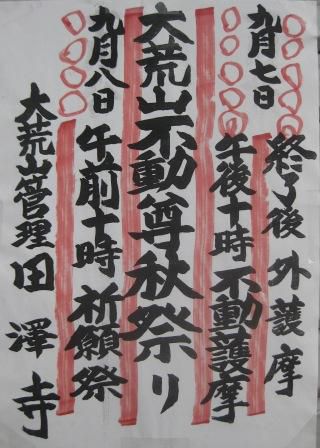 九月七日
終了後 外護摩
午後十時 不動護摩
大荒山不動尊秋祭り
九月八日
午前十時 祈願祭
大荒山管理 田澤寺